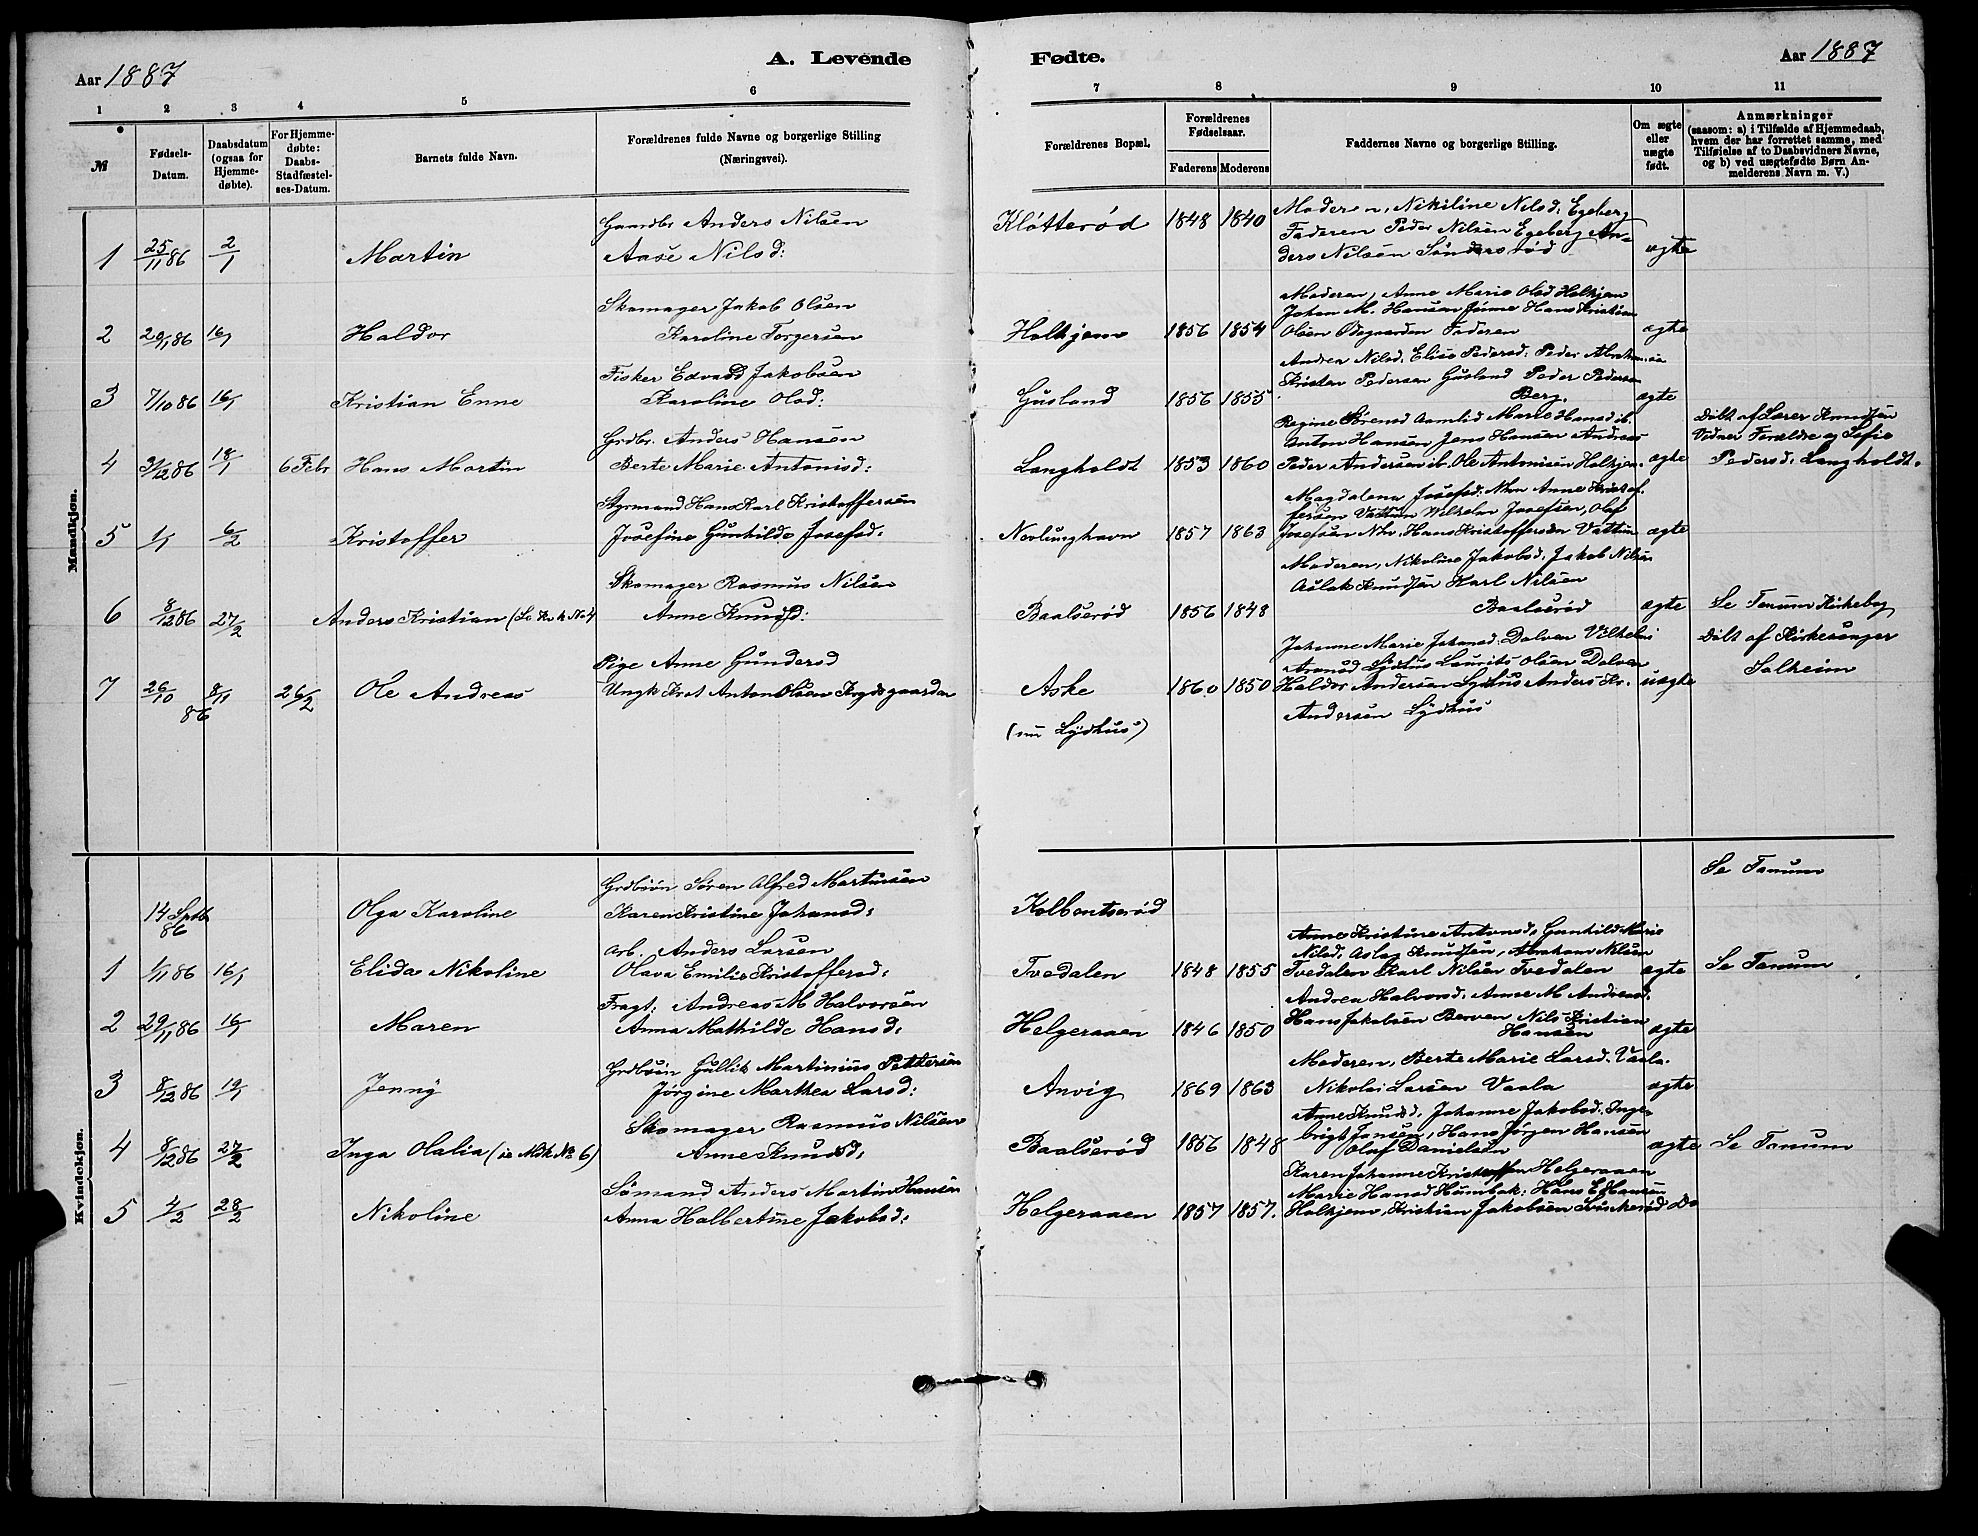 Aar 1887
A. Levende
Fødte.
Aar 1887
1 2 3 4 5 6 7 8 9 10 11
№
Fødsels-
Datum.
Daabsdatum
(ogsaa for
Hjemme-
døbte).
For Hjemme-
døbte:
Daabs-
Stadfæstel-
ses-Datum.
Barnets fulde Navn.
Forældrenes fulde Navne og borgerlige Stilling
(Næringsvei).
Forældrenes Bopæl.
Forældrenes
Fødselsaar.
Faderens Moderens
Faddernes Navne og borgerlige Stilling.
Om ægte
eller
uægte
født.
Anmærkninger
(saasom: a) i Tilfælde af Hjemmedaab,
hvem der har forrettet samme, med
Tilføielse af to Daabsvidners Navne,
og b) ved uægtefødte Børn An-
melderens Navn m. V.)
Mandkjøn.
1 25/11 86 2/1 Martin
Gaardbr Anders Nilsen
Aase Nilsd:
Kløtterød 1848 1840
Moderen, Nikiline Nilsd: Egeberg
Faderen Peder Nilsen Egeberg An-
ders Nilsen Sønderstrød
ægte
2 29/11 86 16/1 Haldor
Skomager Jakob Olsen
Karoline Torgersen
Holkjem 1856 1854
Moderen, Anne Marie Olsd Holkjem
Johan M. Hansen Hans Kristian
Olsen Øegaarden Faderen
ægte
3 7/10 86 16/1 Kristian Enne
Fisker Edvard Jakobsen
Karoline Olsd:
Gusland 1856 1855
Andrea Nilsd. Elise Pedersd: Peder Abrahamsen
Kristen Pedersen Gusland Peder Pedersen
Berg.
ægte
4 31/12 86 18/1 6 Febr Hans Martin
Grdbr. Anders Hansen
Berte Marie Antonisd:
Langholdt 1853 1860
Regine Sørensd Aamlid Marie Hansd ib.
Anton Hansen Jens Hansen Andreas
Peder Andersen ib. Ole Antonisen Holkjem.
ægte
Døbt af Lærer Knudsen
Vidner Forældre og Sofie
Pedersd: Langholdt.
5 1/1 6/2 Kristoffer
Styrmand Hans Karl Kristoffersen
Josefine Gunhilde Josefsd:
Nevlunghavn 1857 1863
Magdalena Josefsd: Nhvn Anne Kristof-
fersen Vattum Wilhelm Josefsen, Olaf
Josefsen Nhv. Hans Kristoffersen Vattum
ægte
6 8/12 86 27/2 Anders Kristian (Se Kv.k № 4
Skomager Rasmus Nilsen
Anne Knudsd:
Baalserød 1856 1848
Moderen, Nikoline Jakobsd, Jakob Nilsen
Aslak Knudsen Karl Nilsen
Baalserød
ægte
Se Tanum Kirkebog
7 26/10 8/11 86 26/2 Ole Andreas
Pige Anne Gundersd
Ungk Krist Anton Olsen Brydegaarden
Aske
(nu Lydhus)
1860 1850
Johanne Marie Johansd. Dolven Vilhelm
Lydhus Laurits Olsen Dolven
Haldor Andersen Lydhus Anders Kr.
Andersen Lydhus
uægte
Døbt af Kirkesanger
Solheim
Kvindekjøn.
14 Sptb 86 Olga Karoline
Grdbrsn Søren Alfred Martinsen
Karen Kristine Johansd:
Kolbentserød
Se Tanum
1 1/11 86 16/1 Elida Nikoline
Arb. Anders Larsen
Olava Emilie Kristoffersd:
Tvedalen 1848 1855
Anne Kristine Antonsd, Gunhild Marie
Nilsd, Aslag Knudsen, Abraham Nilsen
Tvedalen Karl Nilsen Tvedalen
ægte
Se Tanum
2 29/11 86 16/1 Maren
Fragt: Andreas M Halvorsen
Anna Mathilde Hansd:
Helgeraaen 1846 1850
Andrea Halvorsd. Anne M Andreasd.
Hans Jakobsen Berven Nils Kristian
Hansen
ægte
3 8/12 86 19/1 Jenny
Grdbrsn Gullik Martinius Pettersen
Jørgine Marthea Larsd:
Anvig 1869 1863
Moderen, Berte Marie Larsd. Vaala.
Nikolai Larsen Vaala
ægte
4 8/12 86 27/2 Inga Olalia (se Mdk № 6)
Skomager Rasmus Nilsen
Anne Knudsd:
Baalserød 1856 1848
Anne Knudsd, Johanne Jakobsd. Inge-
brigt Jansen, Hans Jørgen Hansen
Olaf Danielsen
ægte
Se Tanum
5 4/2 28/2 Nikoline
Sømand Anders Martin Hansen
Anna Halbertine Jakobsd:
Helgeraaen 1857 1857.
Karen Johanne Kristoffersen Helgeraaen
Marie Hansd Humbak: Hans E Hansen
Holkjem, Kristian Jakobsen Svinkerød
Do